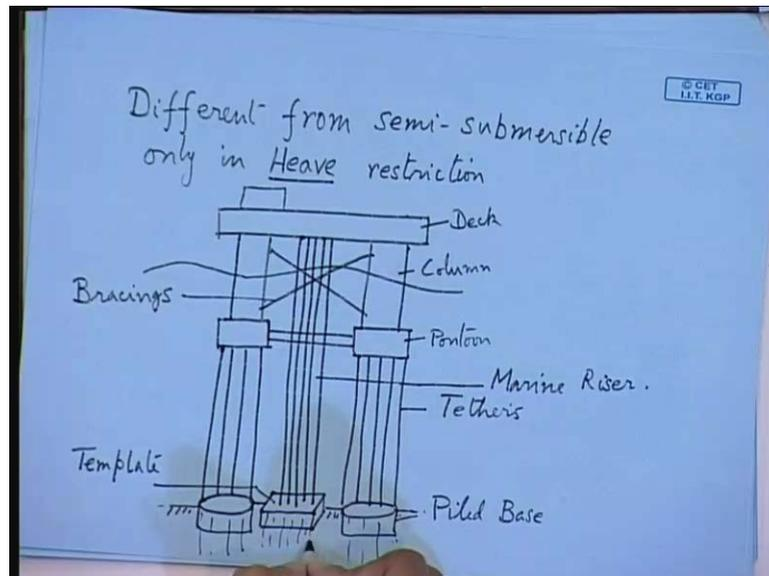 © CET
I.I.T. KGP
Different from semi-submersible
only in Heave restriction
Deck
Column
Bracings
Pontoon
Marine Riser.
Tethers
Template
Piled Base